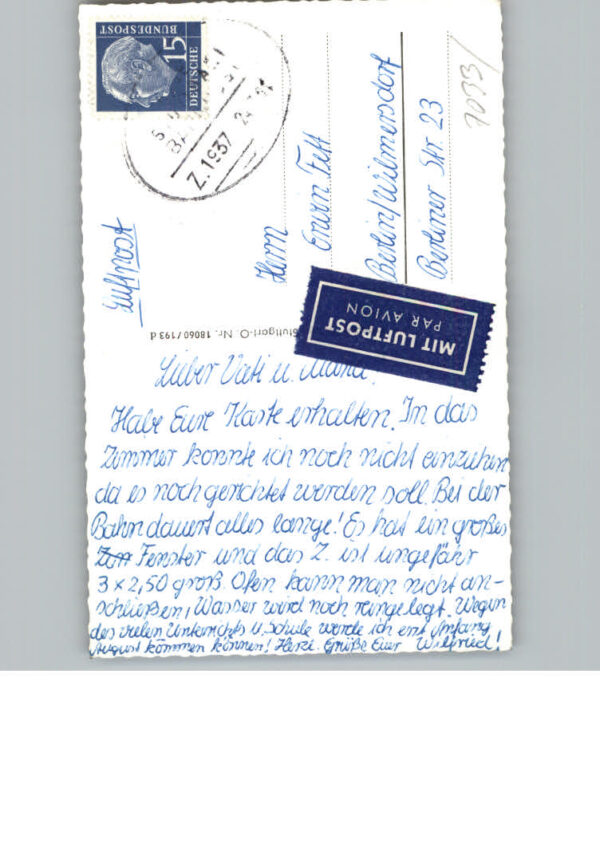 15
DEUTSCHE
BUNDESPOST
Z.1937
Luftpost
Herrn
Erwin Fett
Berlin/Wilmersdorf
Berliner Str. 23
7033/
MIT LUFTPOST
PAR AVION
Stuttgart-O. Nr. 18060/193 d
Lieber Vati u.
Habe Eure Karte erhalten. In das
Zimmer konnte ich noch nicht einziehen
da es noch gerichtet werden soll. Bei der
Bahn dauert alles lange! Es hat ein großes
Fenster und das Z. ist ungefähr
3 x 2,50 groß Ofen kann man nicht an-
schließen, Wasser wird noch reingelegt. Wegen
des vielen Unterrichts u. Schule werde ich erst Anfang
August kommen können! Herzl. Grüße Euer Wilfried!